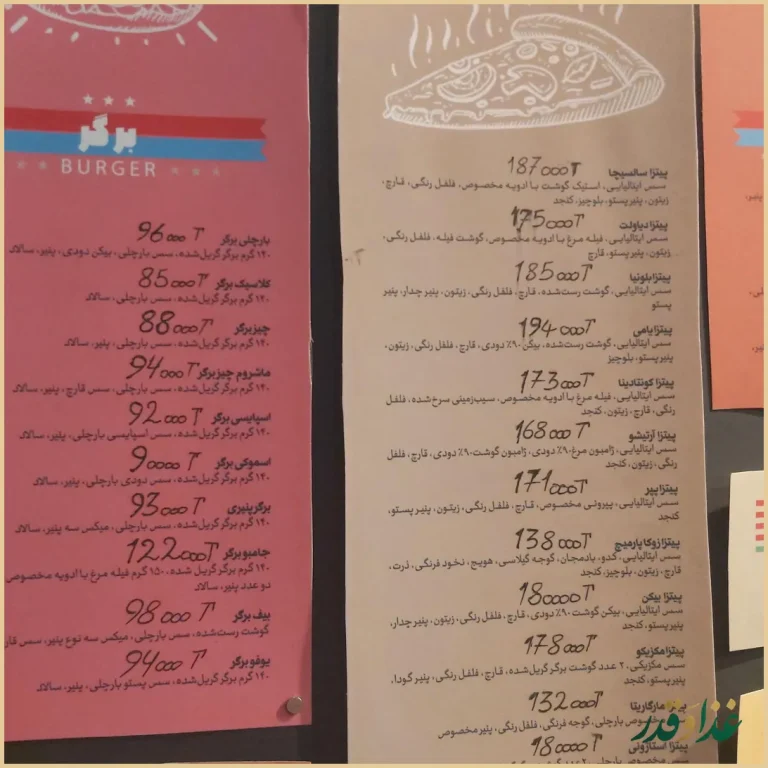 برگر
BURGER
بارچلی برگر 96000 T
۱۴۰ گرم برگر گریل‌شده، سس بارچلی، بیکن دودی، پنیر، سالاد
کلاسیک برگر 85000T
۱۴۰ گرم برگر گریل‌شده، سس بارچلی، سالاد
چیز برگر 88000T
۱۴۰ گرم برگر گریل‌شده، سس بارچلی، پنیر، سالاد
ماشروم چیز برگر 94000T
۱۴۰ گرم برگر گریل‌شده، سس بارچلی، سس قارچ، پنیر، سالاد
اسپایسی برگر 92000 T
۱۴۰ گرم برگر گریل‌شده، سس اسپایسی بارچلی، پنیر، سالاد
اسموکی برگر 90000 T
۱۴۰ گرم برگر گریل‌شده، سس دودی بارچلی، پنیر، سالاد
برگر پنیری 93000 T
۱۴۰ گرم برگر گریل‌شده، سس بارچلی، میکس سه پنیر، سالاد
جامبو برگر 122000T
۱۴۰ گرم برگر گریل شده، ۱۵۰ گرم فیله مرغ با ادویه مخصوص
دو عدد پنیر، سالاد
بیف برگر 98000 T
گوشت رست‌شده، سس بارچلی، میکس سه نوع پنیر، سس قار
یوفو برگر 94000 T
۱۴۰ گرم برگر گریل‌شده، سس پستو بارچلی، پنیر، سالاد
پیتزا سالسیچا 187000T
سس ایتالیایی، استیک گوشت با ادویه مخصوص، فلفل رنگی، قارچ،
زیتون، پنیر پستو، بلوچیز، کنجد
پیتزا دیاولت 175000T
سس ایتالیایی، فیله مرغ با ادویه مخصوص، گوشت فیله، فلفل رنگی،
زیتون، پنیر پستو، قارچ
پیتزا بلونیا 185000T
سس ایتالیایی، گوشت رست‌شده، قارچ، فلفل رنگی، زیتون، پنیر چدار، پنیر
پستو
پیتزا یامی 194000T
سس ایتالیایی، گوشت رست‌شده، بیکن ۹۰٪ دودی، قارچ، فلفل رنگی، زیتون،
پنیر پستو، بلوچیز
پیتزا کونتادینا 173000T
سس ایتالیایی، فیله مرغ با ادویه مخصوص، سیب‌زمینی سرخ‌شده، فلفل
رنگی، قارچ، زیتون، کنجد
پیتزا آرتیشو 168000 T
سس ایتالیایی، ژامبون مرغ ۹۰٪ دودی، ژامبون گوشت ۹۰٪ دودی، قارچ، فلفل
رنگی، زیتون، کنجد
پیتزا پپر 171000T
سس ایتالیایی، پپرونی مخصوص، قارچ، فلفل رنگی، زیتون، پنیر پستو،
کنجد
پیتزا زوکا پارمیج 138000T
سس ایتالیایی، کدو، بادمجان، گوجه گیلاسی، هویج، نخود فرنگی، ذرت،
قارچ، زیتون، بلوچیز، کنجد
پیتزا بیکن 180000T
سس ایتالیایی، بیکن گوشت ۹۰٪ دودی، قارچ، فلفل رنگی، زیتون، پنیر چدار،
پنیر پستو، کنجد
پیتزا مکزیکو 178000T
سس مکزیکی، ۲ عدد گوشت برگر گریل‌شده، قارچ، فلفل رنگی، پنیر گودا،
پنیر پستو، کنجد
مارگاریتا 132000T
مخصوص بارچلی، گوجه فرنگی، فلفل رنگی، پنیر مخصوص
پیتزا استارونی 180000T
غذا قدر